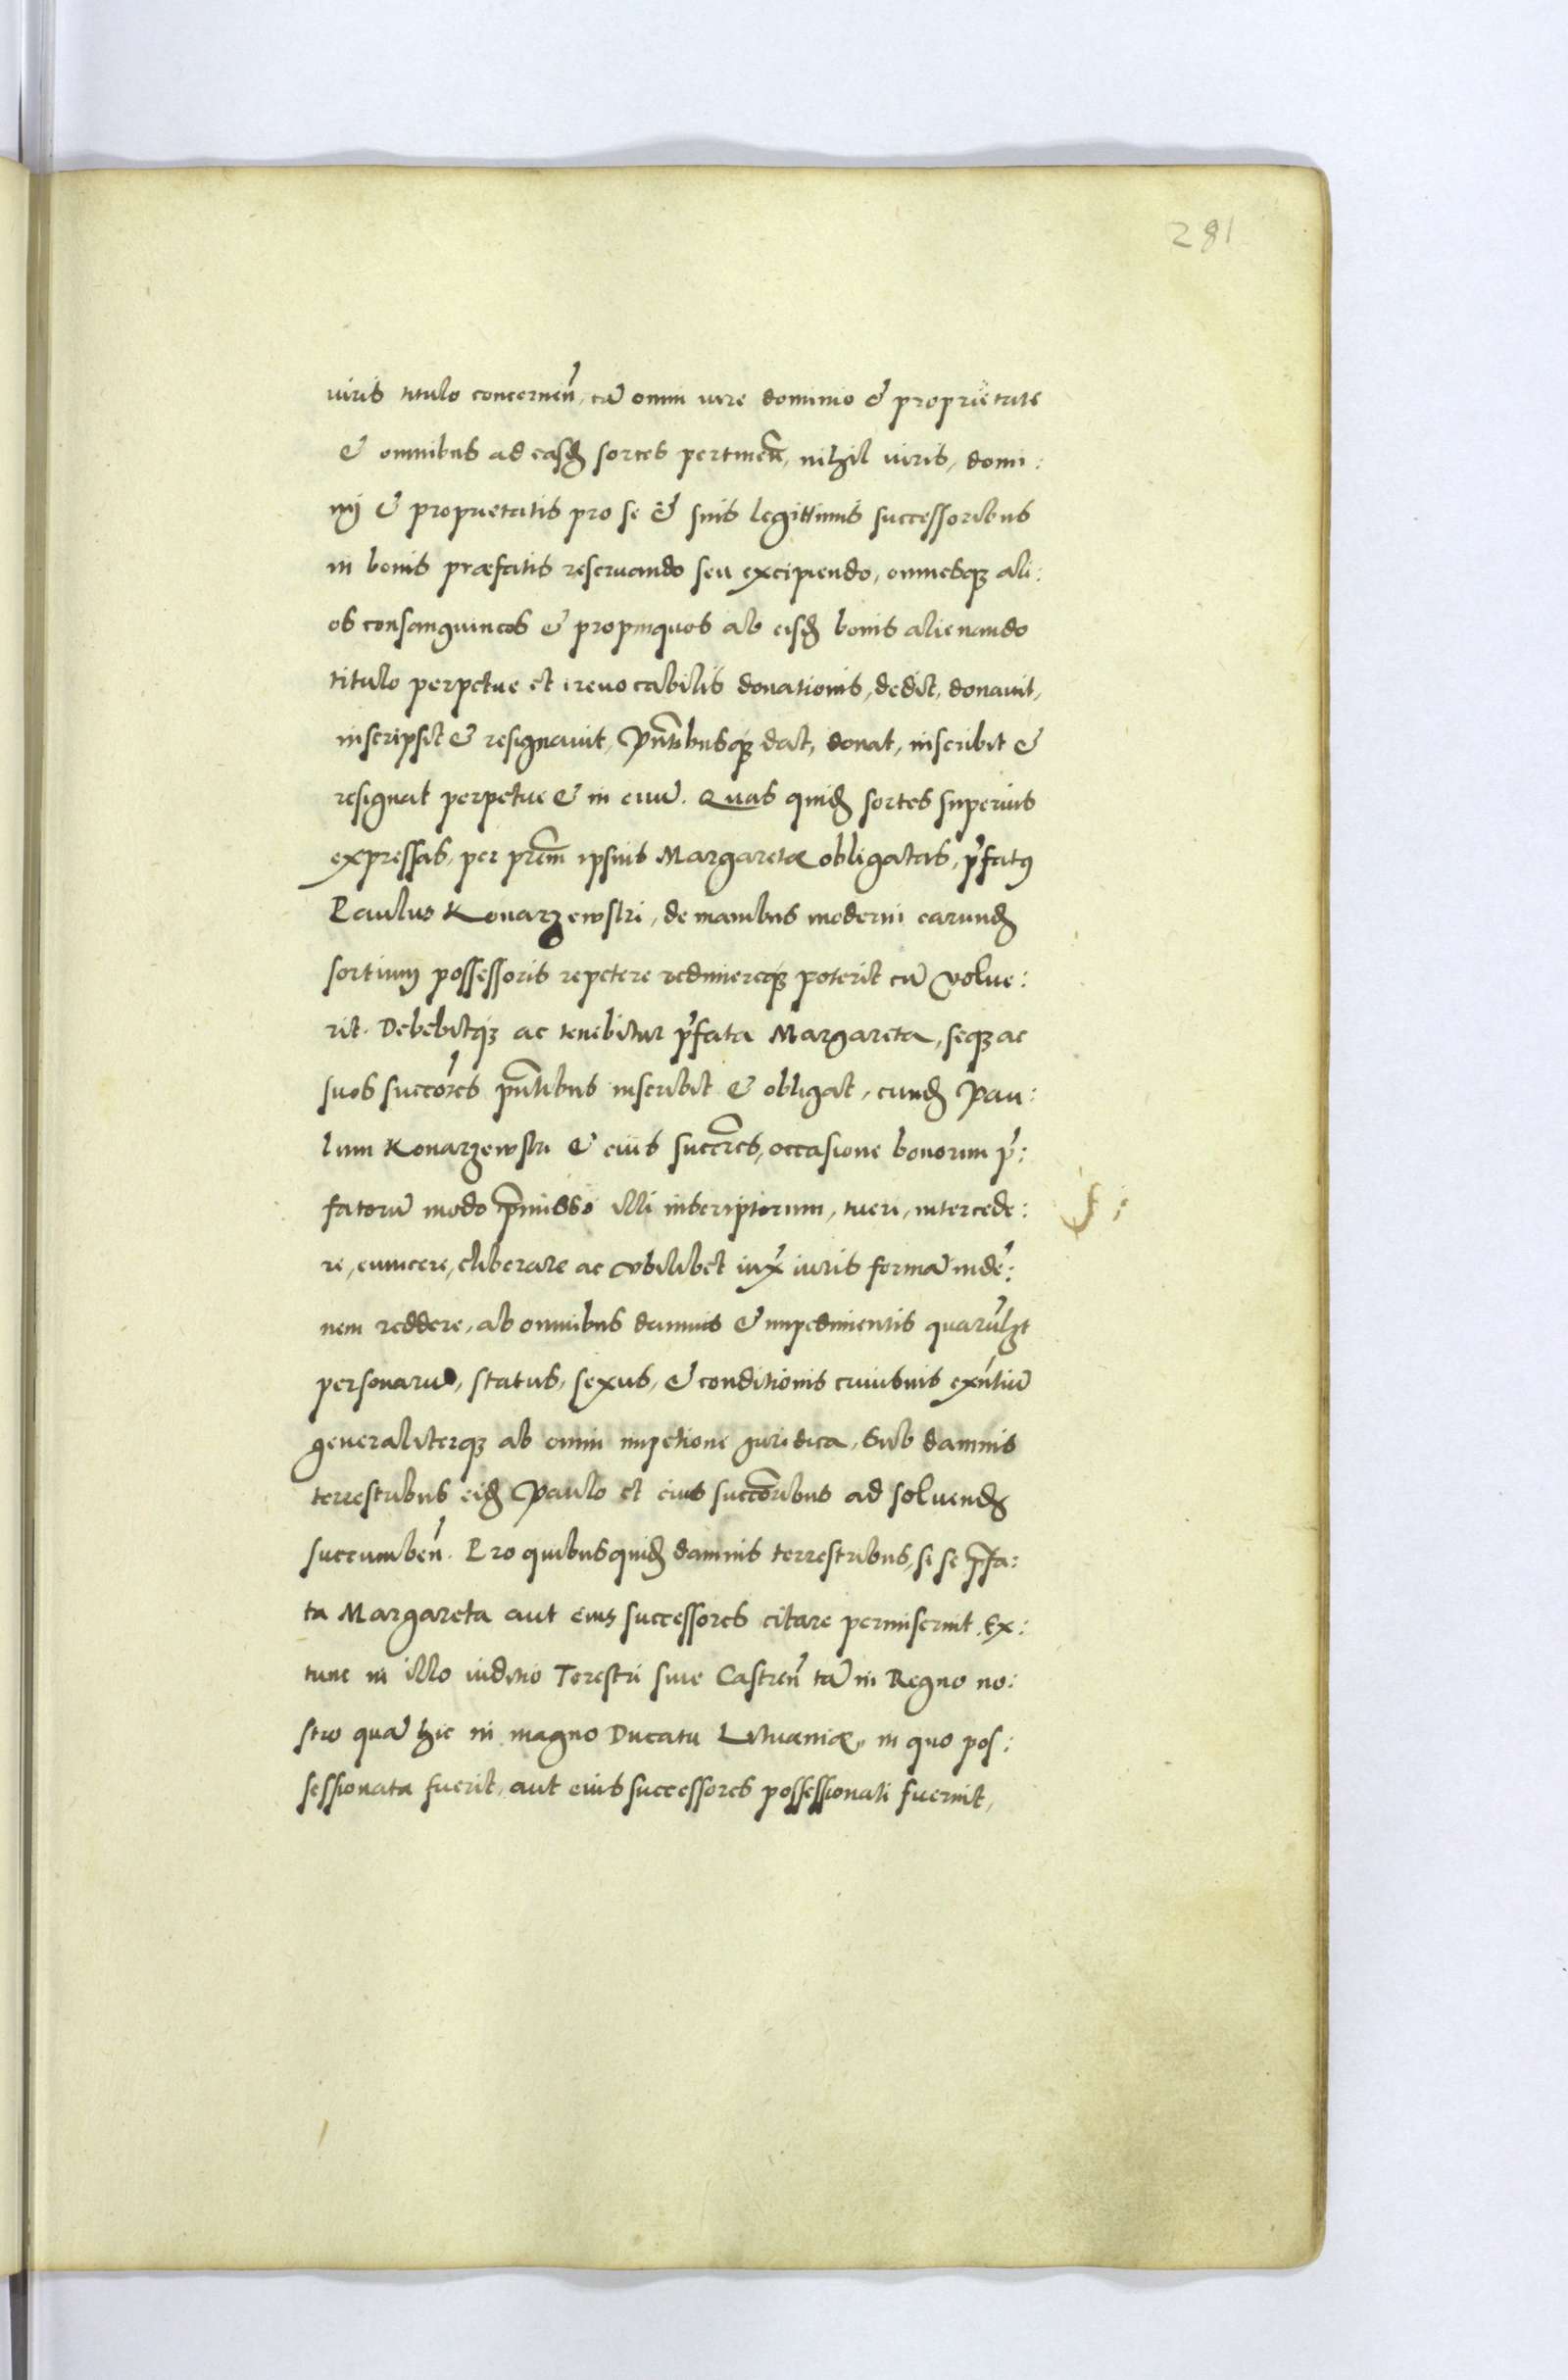 281
iuris titulo concerneñ, cũ omni iure dominio & proprietate
& omnibus ad easđ sortes pertineñ, nihil iuris, domi:
nij & proprietatis pro se & suis legittimis successoribus
in bonis præfatis reseruando seu excipiendo, omnesqȝ ali:
os consanguineos & propinquos ab eisđ bonis alienando
titulo perpetue et ireuocabilis donationis, dedit, donauit,
inscripsit & resignauit, Pñtibusqȝ dat, donat, inscribit &
resignat perpetue & in euũ. Quas quiđ sortes superius
expressas, per prẽm ipsius Margaretæ obligatas, p̃fatꝰ
Paulus Konarzewski, de manibus moderni earunđ
sortium possessoris repetere redimereqȝ poterit cũ volue:
rit. Debebitqȝ ac tenebitur p̃fata Margareta, seqȝ ac
suos succõres pñtibus inscribit & obligat, eunđ Pau:
lum Konarzewski & eius succr̃es, occasione bonorum p̃:
fatorũ modo p̃misso illi inscriptorum, tueri, intercede:
re, euincere, eliberare ac vbilibet iux̃ iuris formã indẽ:
nem reddere, ab omnibus damnis & impedimentis quarũlȝt
personarũ, status, sexus, & conditionis cuiusuis exñtiũ
generaliterqȝ ab omni impetione juridica, Sub damnis
terrestribus eiđ Paulo et eius succõribus ad soluenđ
succumbeñ. Pro quibus quiđ damnis terrestribus, si se p̃fa:
ta Margareta aut eius successores citare permiserint, Ex:
tunc in illo iuditio Terestri siue Castreñ tã in Regno no:
stro quã hic in magno Ducatu Lituaniæ, in quo pos:
sessionata fuerit, aut eius successores possessionati fuerint,